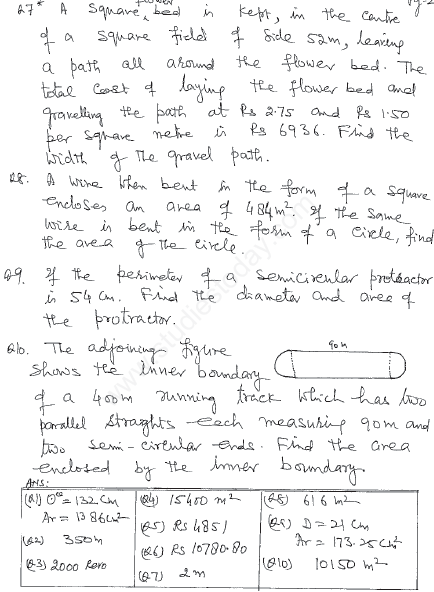 flower
Q7* A square bed is kept, in the centre
of a square field of side 52m, leaving
a path all around the flower bed. The
total cost of laying the flower bed and
gravelling the path at Rs 2.75 and Rs 1.50
per square metre is Rs 6936. Find the
width of the gravel path.
Q8. A wire when bent in the form of a square
encloses an area of 484m². If the same
wire is bent in the form of a circle, find
the area of the circle.
Q9. If the perimeter of a semicircular protractor
is 54 cm. Find the diameter and area of
the protractor.
Q10. The adjoining figure
90m
shows the inner boundary
of a 400m running track which has two
parallel straights each measuring 90m and
two semi-circular ends. Find the area
enclosed by the inner boundary.
Ans:
(Q1) = 132 cm
Ar = 1386 cm²
(Q2) 350m
(Q3) 2000 Revo
(Q4) 15400 m²
(Q5) Rs 4851
(Q6) Rs 10780.80
(Q7) 2m
(Q8) 616 m²
(Q9) D = 21 cm
Ar = 173.25 cm²
(Q10) 10150 m²